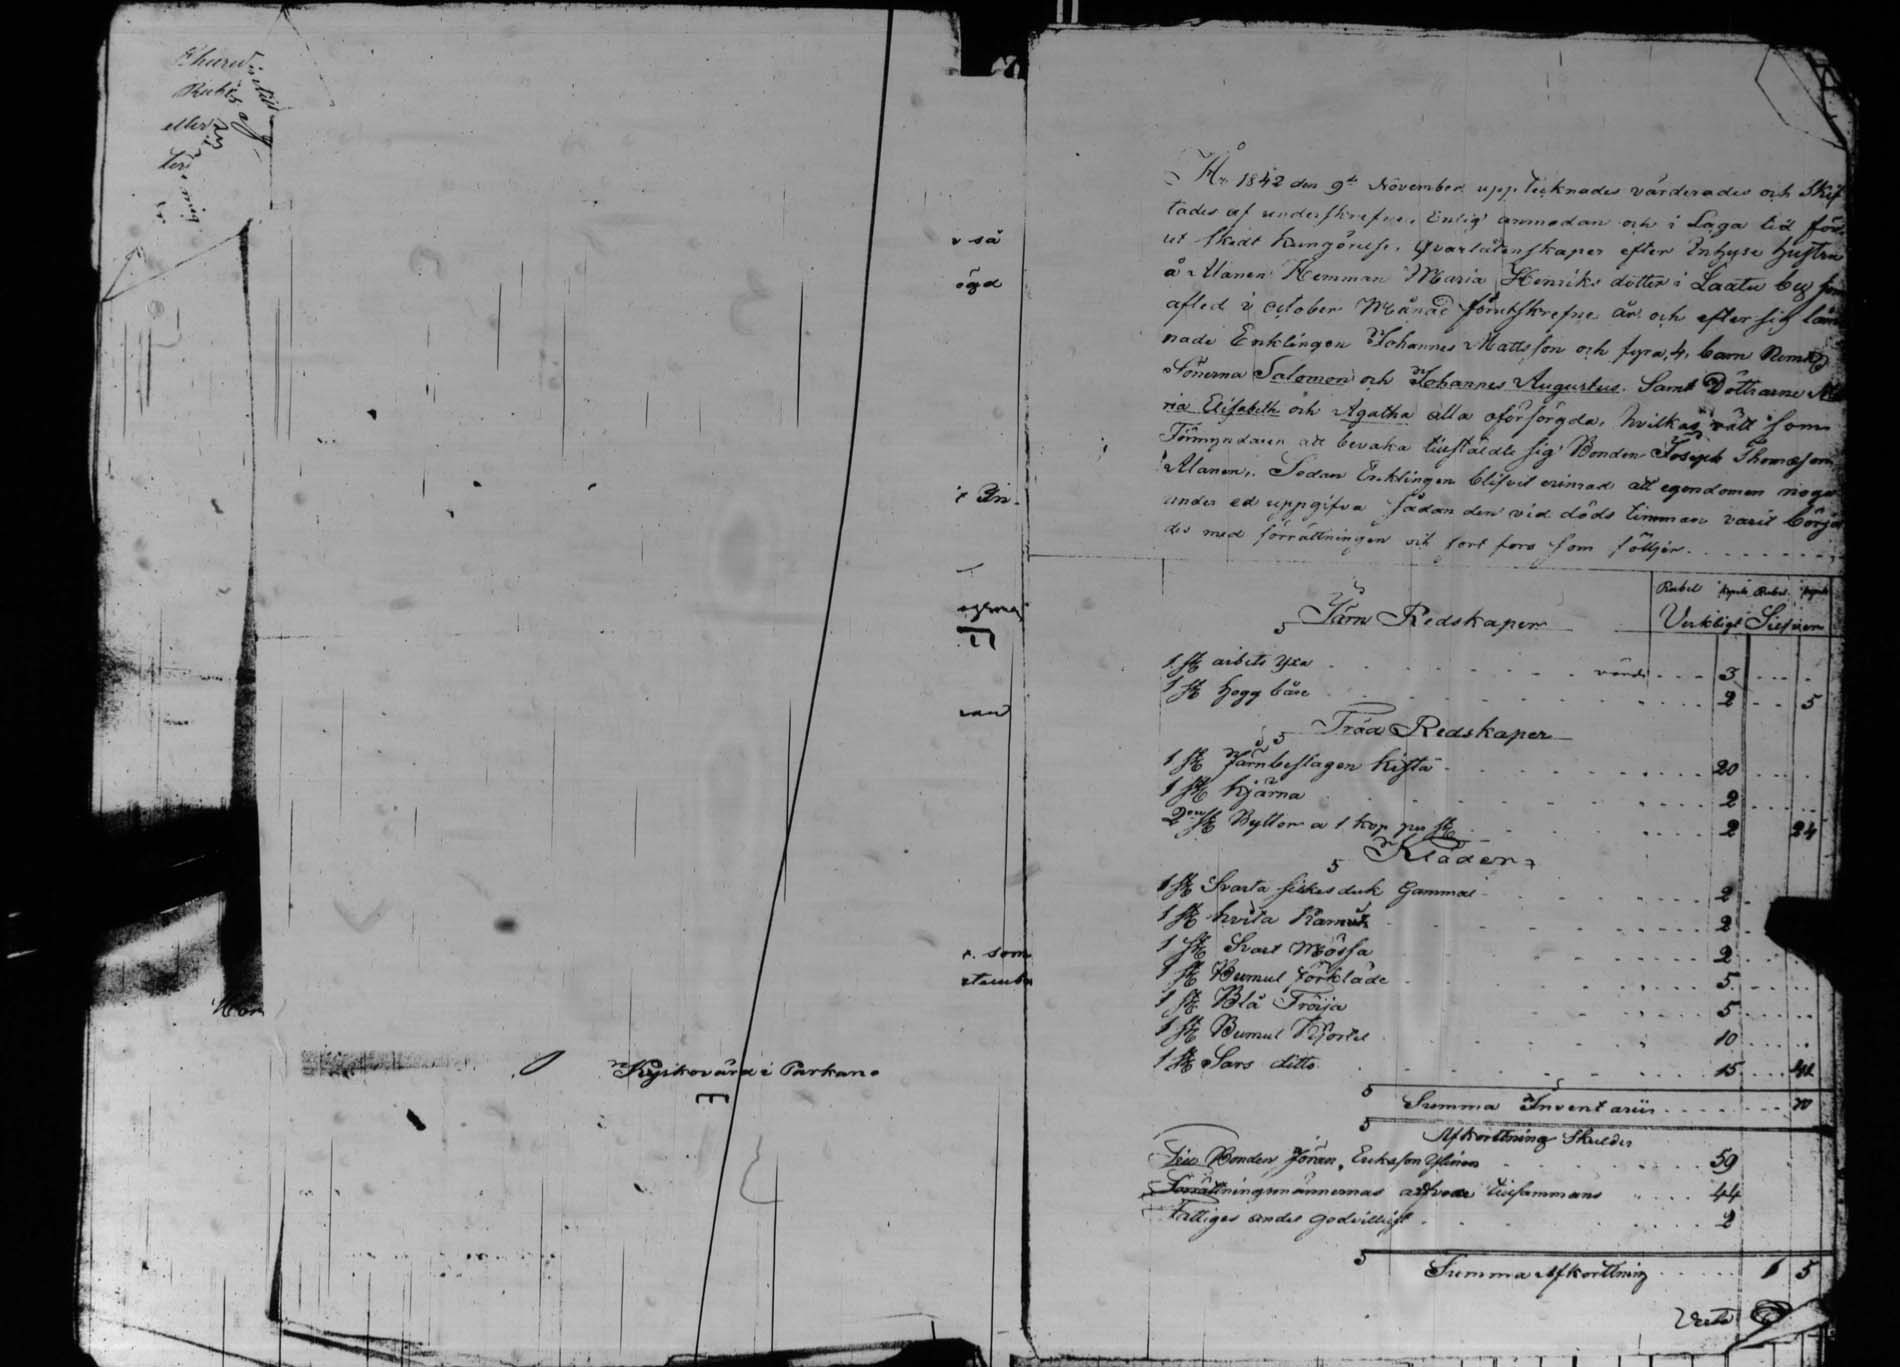 eller
v så
ögd
rand
x. som
Kyrkovärd i Parkano
År 1842 den 9de November upp tecknades värderades och Skif
tades af underskrefne, Enlig anmodan och i Laga tid för
ut skedt kungörelse, qvarlåtenskapen efter Inhyse hustru
å Alanen Hemman Maria Henriks dotter i Laatu by som
afled i October Månad förutskrefne år och efter sig läm
nade Enklingen Johannes Mattsson och fyra, 4, barn Neml
Sönerna Salomon och Johannes Augustus. Samt Döttrarne Ma
ria Elisabeth och Agatha alla oförsörgda, hvilkas rätt som
Förmyndaren att bevaka tillstädde sig Bonden Joseph Thomasson
Alanen. Sedan Enklingen blifvit erinrad att egendomen noga
under ed uppgifva sådan den vid döds timman varit börja
des med förrättningen och fort fors som följer.
Rubel kopek Rubel kopek
Järn Redskaper Verkligt Silfver
1 St arbets yxa värde 3
1 St hogg båre 2 5
Träd Redskaper
1 St Järnbeslagen kista 20
1 St kjärna 2
2 St Byttor a 1 kop per St 2 24
Kläder
1 St Svarta silkes duk gammal 2
1 St hvita 2
1 St Svart Mössa 2
1 St Bumul förkläde 5
1 St Blå Tröija 5
1 St Bumul Kjortel 10
1 St Sars ditto 15 41
Summa Inventarii 70
Afkorttning Skulder
Till Bonden Jöran Eriksson Ylinen 59
Förrättningsmännernas arfvode tillsammans 44
Fattiges andel godvilligt 2
Summa Afkorttning 1 5